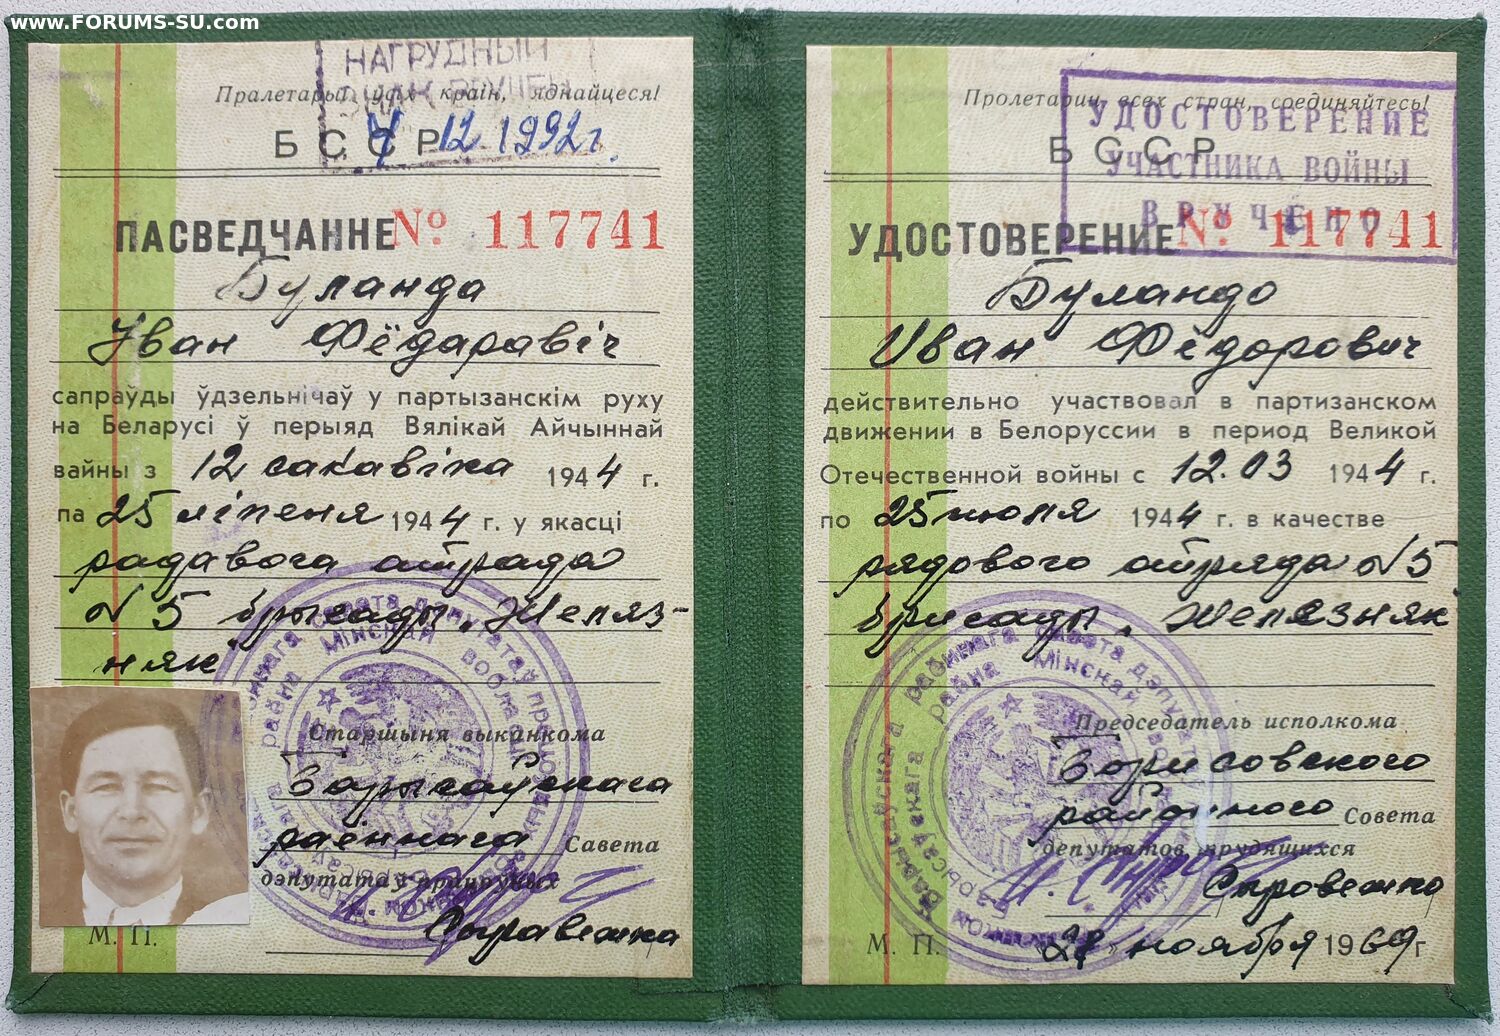 www.FORUMS-SU.com
НАГРУДНЫЙ
Пралетарыі ўсіх краін, яднайцеся!
БССР
4 12 1992г.
ПАСВЕДЧАННЕ № 117741
Буланда
Іван Фёдаравіч
сапраўды ўдзельнічаў у партызанскім руху
на Беларусі ў перыяд Вялікай Айчыннай
вайны з 12 сакавіка 1944 г.
па 25 ліпеня 1944 г. у якасці
радавога атрада
№ 5 брыгады „Желяз-
няк"
Старшыня выканкома
Барысаўскага
раённага Савета
дэпутатаў працоўных
М. П.
Пролетарии всех стран, соединяйтесь!
БССР
УДОСТОВЕРЕНИЕ
УЧАСТНИКА ВОЙНЫ
ВРУЧЕНО
УДОСТОВЕРЕНИЕ № 117741
Буландо
Иван Фёдорович
действительно участвовал в партизанском
движении в Белоруссии в период Великой
Отечественной войны с 12.03 1944 г.
по 25 июля 1944 г. в качестве
рядового отряда №5
бригады „Железняк"
Председатель исполкома
Борисовского
районного Совета
депутатов трудящихся
М. П. „28" ноября 1969г